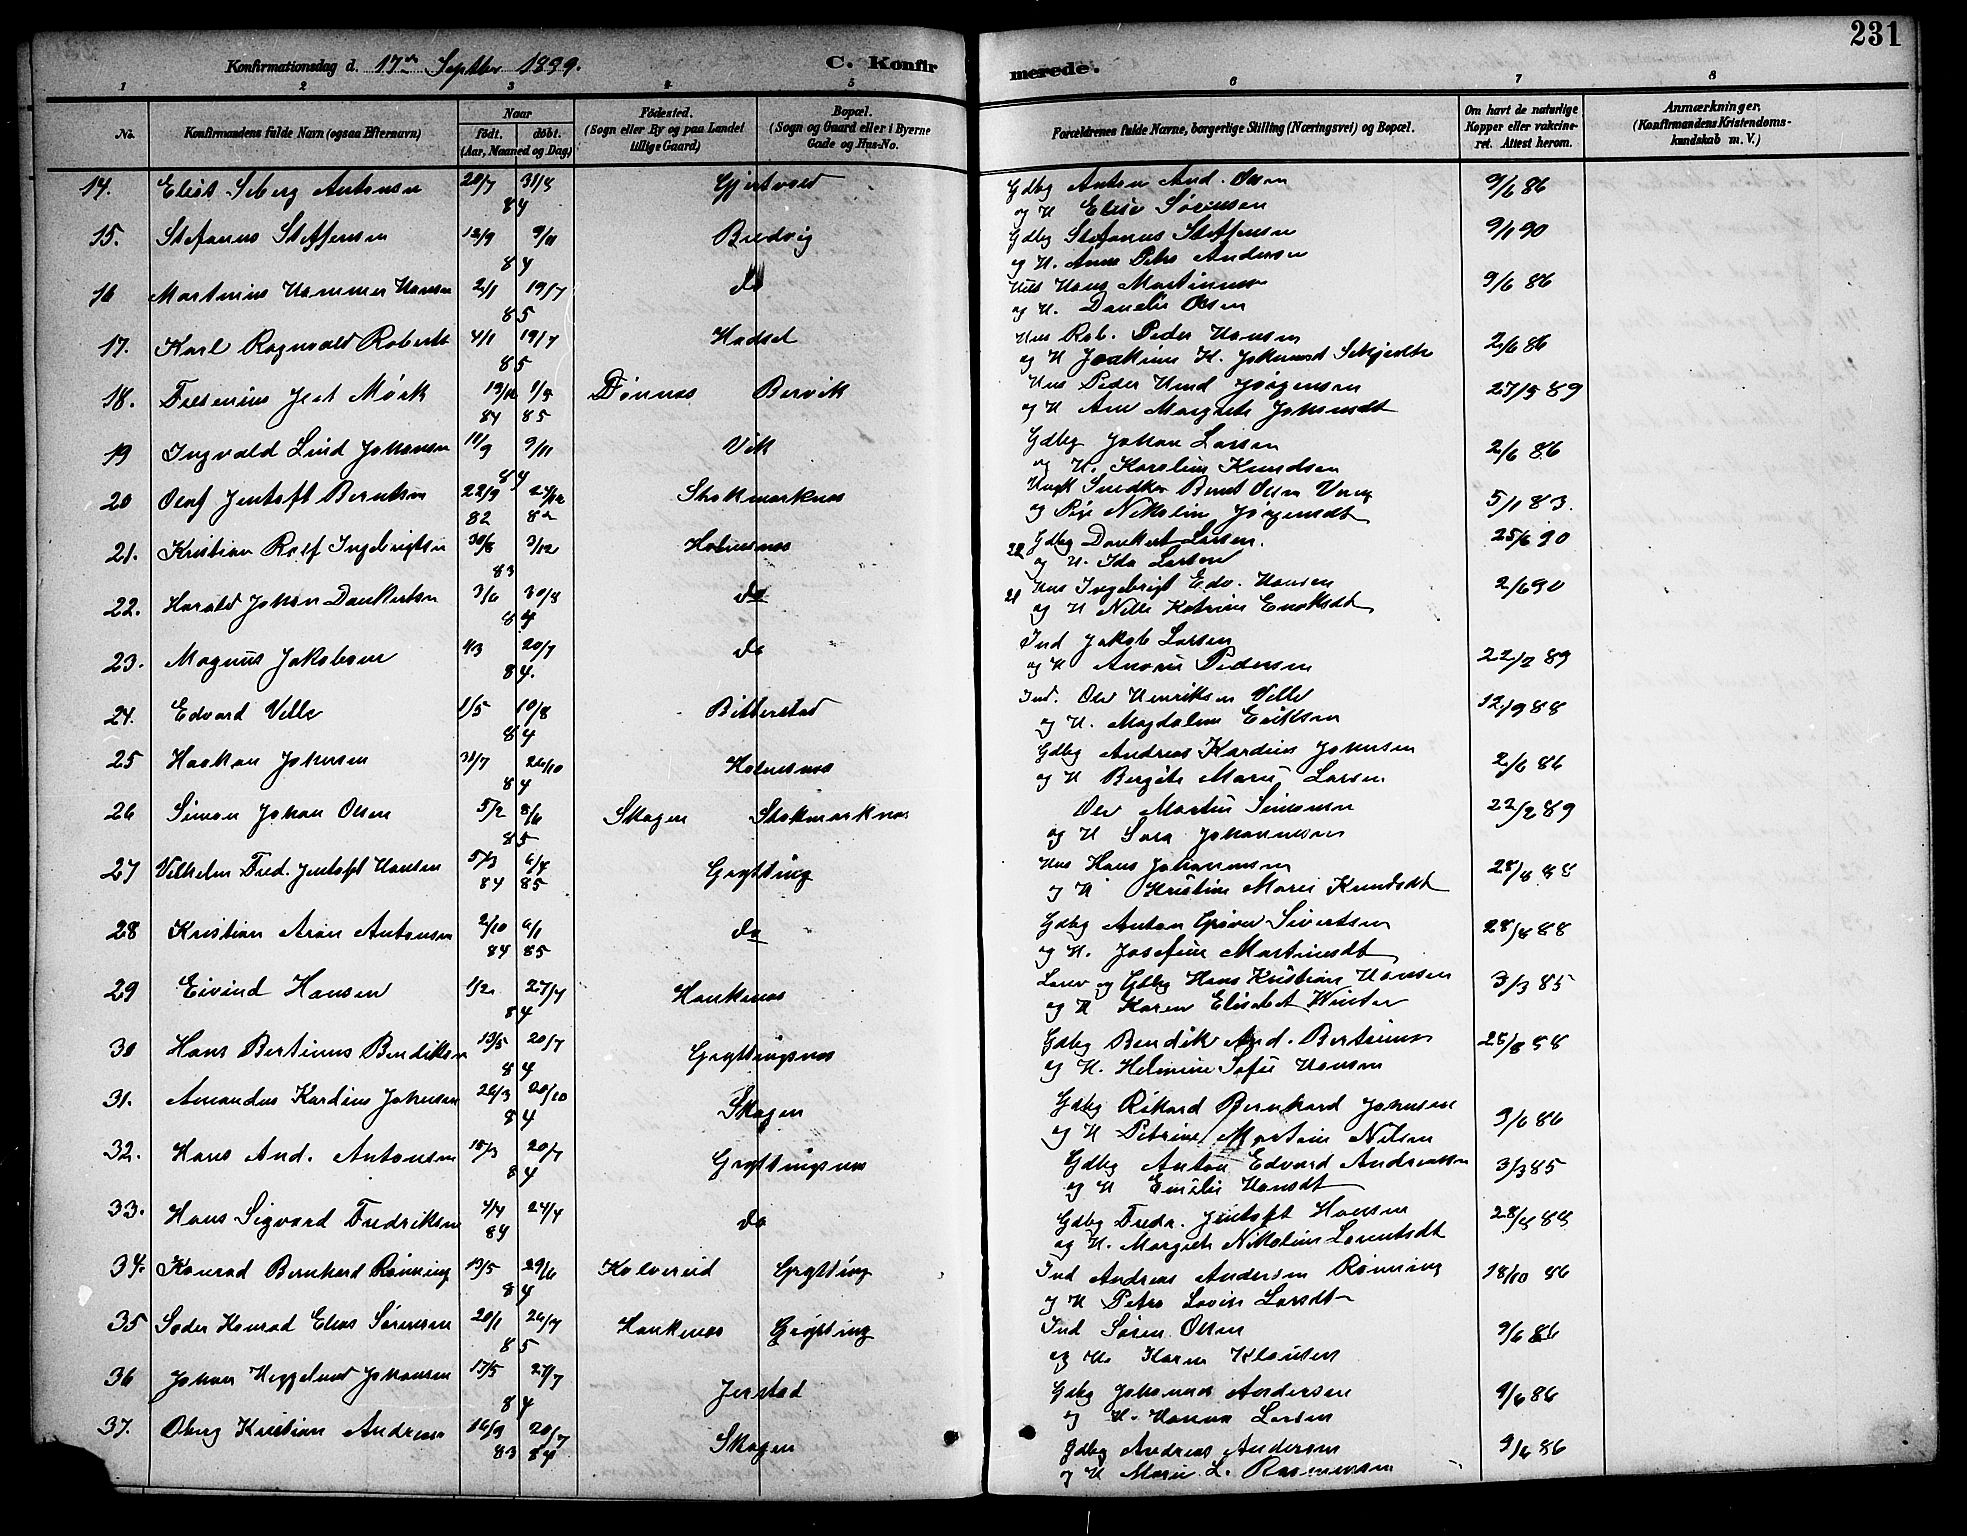 231
Konfirmationsdag d. 17de Septbr 1899. C. Konfirmerede.
1 2 3 4 5 6 7 8
No. Konfirmandens fulde Navn (ogsaa Efternavn) Naar født. døbt. (Aar, Maaned og Dag) Fødested. (Sogn eller By og paa Landet tillige Gaard) Bopæl. (Sogn og Gaard eller i Byerne Gade og Hus-No. Forældrenes fulde Navne, borgerlige Stilling (Næringsvei) og Bopæl. Om havt de naturlige Kopper eller vakcineret. Attest herom. Anmærkninger. (Konfirmandens Kristendomskundskab m. V.)
14. Antonsen 20/7 31/8 84 Gjerstvold Gdbg Anton And. Olsen 9/6 86
og H Elise Sørensen
15. Stefanus Steffensen 12/9 9/11 84 Bredvig Gdbg Stefanus Steffensen 9/1 90
og H. Anne Petra Andersen
16 Martinius Hammer Hansen 2/1 19/7 85 do Hus Hans Martinussen 9/6 86
og H. Danelie Olsen
17. Karl Ragnvald Roberts 4/1 19/7 85 Hadsel Hus Rob. Peder Hansen 2/6 86
og H Joakime H.
18. Jent Mørk 19/12 84 1/5 85 Dønnes Bervik Hus Peder Hind Jørgensen 27/5 89
og H Ane Margrete Johansdt
19 Ingvald Lind Johansen 11/9 9/11 84 Vik Gdbg Johan Larsen 2/6 86
og H. Karoline Knudsen
20 Olaf Jentoft Berntsen 22/9 82 27/12 82 Stokmarknes Ungk Snedker Bernt Olsen 5/1 83.
og Pige Nikoline Jørgensdt
21. Kristian Rolf Ingebrigtsen 30/8 2/12 83 Holmesnes 22 Gdbg Dankert Larsen. 25/6 90
og H. Ida Larsen
22. Harald Johan Dankertsen 3/6 30/8 84 do 21 Hus Ingebrigt Edv. Hansen 2/6 90
og H Nille Katrine Enoksdt
23. Magnus Jakobsen 4/3 20/7 84. do Ind Jakob Larsen 22/2 89
og H Anna Pedersen
24. Edvard Velle 1/5 10/8 84 Bitterstad Ind. Ole Henriksen Velle 12/9 88
og H. Magdalene Eriksen
25 Haakon Johnsen 31/7 26/10 84 Holmesnes Gdbg Andreas Kardius Johnsen 2/6 86
og H Bergite Marie Larsen
26 Simon Johan Olsen 5/2 8/6 85 Skagen Stokmarknes Ole Martin Simonsen 22/2 89
og H Sara Johannessen
27 Vilhelm Fred. Jentoft Hansen 5/3 84 6/4 85 Grytting Hus Hans Johannesen 28/8 88
og H Kristine Marie Knudsdt
28 Kristian Aron Antonsen 2/10 84 6/1 85 do Gdbg Anton Sivertsen 28/8 88
og H. Josefine Martinsdt
29 Eivind Hansen 1/2 27/4 84 Haukenes og Gdbg Hans Kristian Hansen 3/3 85
og H Karen Elisabet Winter
30 Hans Bertinus Bendiksen 13/5 20/7 84 Gryttingsnes Gdbg Bendik And. Bertinus 28/8 88
og H. Helmine Sofie Hansen
31. Amandus Kardius Johnsen 26/3 20/10 84 Skagen Gdbg Rikard Bernhard Johnsen 9/6 86
og H Petrine Martine Nilsen
32. Hans And. Antonsen 15/3 20/7 84 Gryttingsnes Gdbg Anton Edvard Andreassen 3/3 85
og H Emilie Hansdt
33. Hans Sigvard Fredriksen 4/4 84 24/4 do Gdbg Fredr. Jentoft Hansen 28/8 88
og H. Margrete Nikoline Lorentsdt
34. Konrad Bernhard Rønning 13/5 29/6 84 Kolvereid Grytting Ind Andreas Andersen Rønning 18/10 86
og H Petra Lovise Larsdt
35 Søder Konrad Elias Sørensen 20/1 26/7 85 Haukenes Grytting Ind Søren Olsen 9/6 86
og H. Karen Klausen
36 Johan Heggelund Johansen 17/5 27/7 84 Jerstad Gdbg Johannes Andersen 9/6 86
og H. Hanna Larsen
37. Oberg Kristian Andreas 16/9 83 20/7 84 Skagen Gdbg Andreas Andersen 9/6 86
og H Marie L. Rasmussen